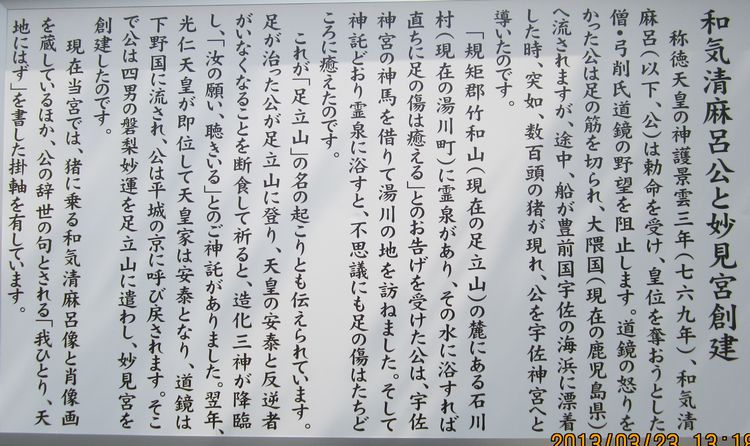 和気清麻呂公と妙見宮創建
称徳天皇の神護景雲三年(七六九年)、和気清
麻呂(以下、公)は勅命を受け、皇位を奪おうとした
僧・弓削氏道鏡の野望を阻止します。道鏡の怒りを
かった公は足の筋を切られ、大隈国(現在の鹿児島県)
へ流されますが、途中、船が豊前国宇佐の海浜に漂着
した時、突如、数百頭の猪が現れ、公を宇佐神宮へと
導いたのです。
「規矩郡竹和山(現在の足立山)の麓にある石川
村(現在の湯川町)に霊泉があり、その水に浴すれば
直ちに足の傷は癒える」とのお告げを受けた公は、宇佐
神宮の神馬を借りて湯川の地を訪ねました。そして
神託どおり霊泉に浴すと、不思議にも足の傷はたちど
ころに癒えたのです。
これが「足立山」の名の起こりとも伝えられています。
足が治った公が足立山に登り、天皇の安泰と反逆者
がいなくなることを断食して祈ると、造化三神が降臨
し、「汝の願い、聴きいる」とのご神託がありました。翌年、
光仁天皇が即位して天皇家は安泰となり、道鏡は
下野国に流され、公は平城の京に呼び戻されます。そこ
で公は四男の磐梨妙運を足立山に遣わし、妙見宮を
創建したのです。
現在当宮では、猪に乗る和気清麻呂像と肖像画
を蔵しているほか、公の辞世の句とされる「我ひとり、天
地にはず」を書した掛軸を有しています。
2013/03/23 13:18